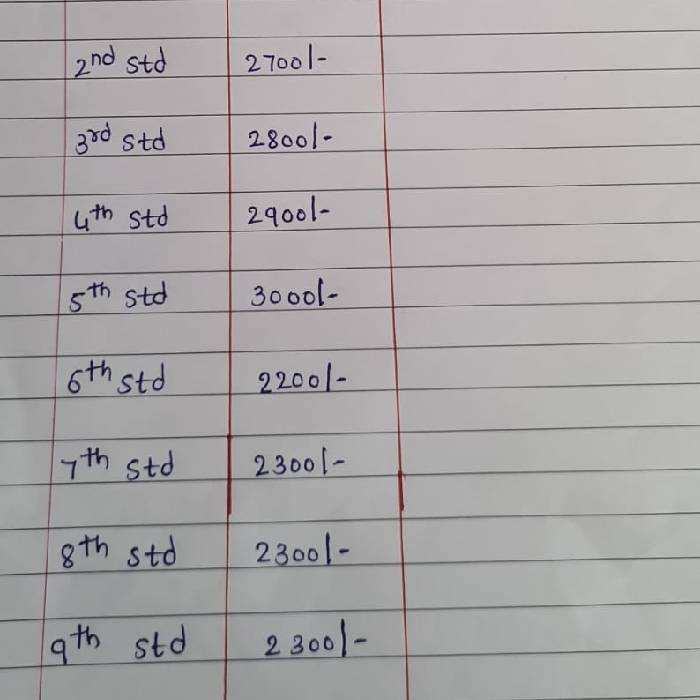 2nd std 2700/-
3rd std 2800/-
4th std 2900/-
5th std 3000/-
6th std 2200/-
7th std 2300/-
8th std 2300/-
9th std 2300/-